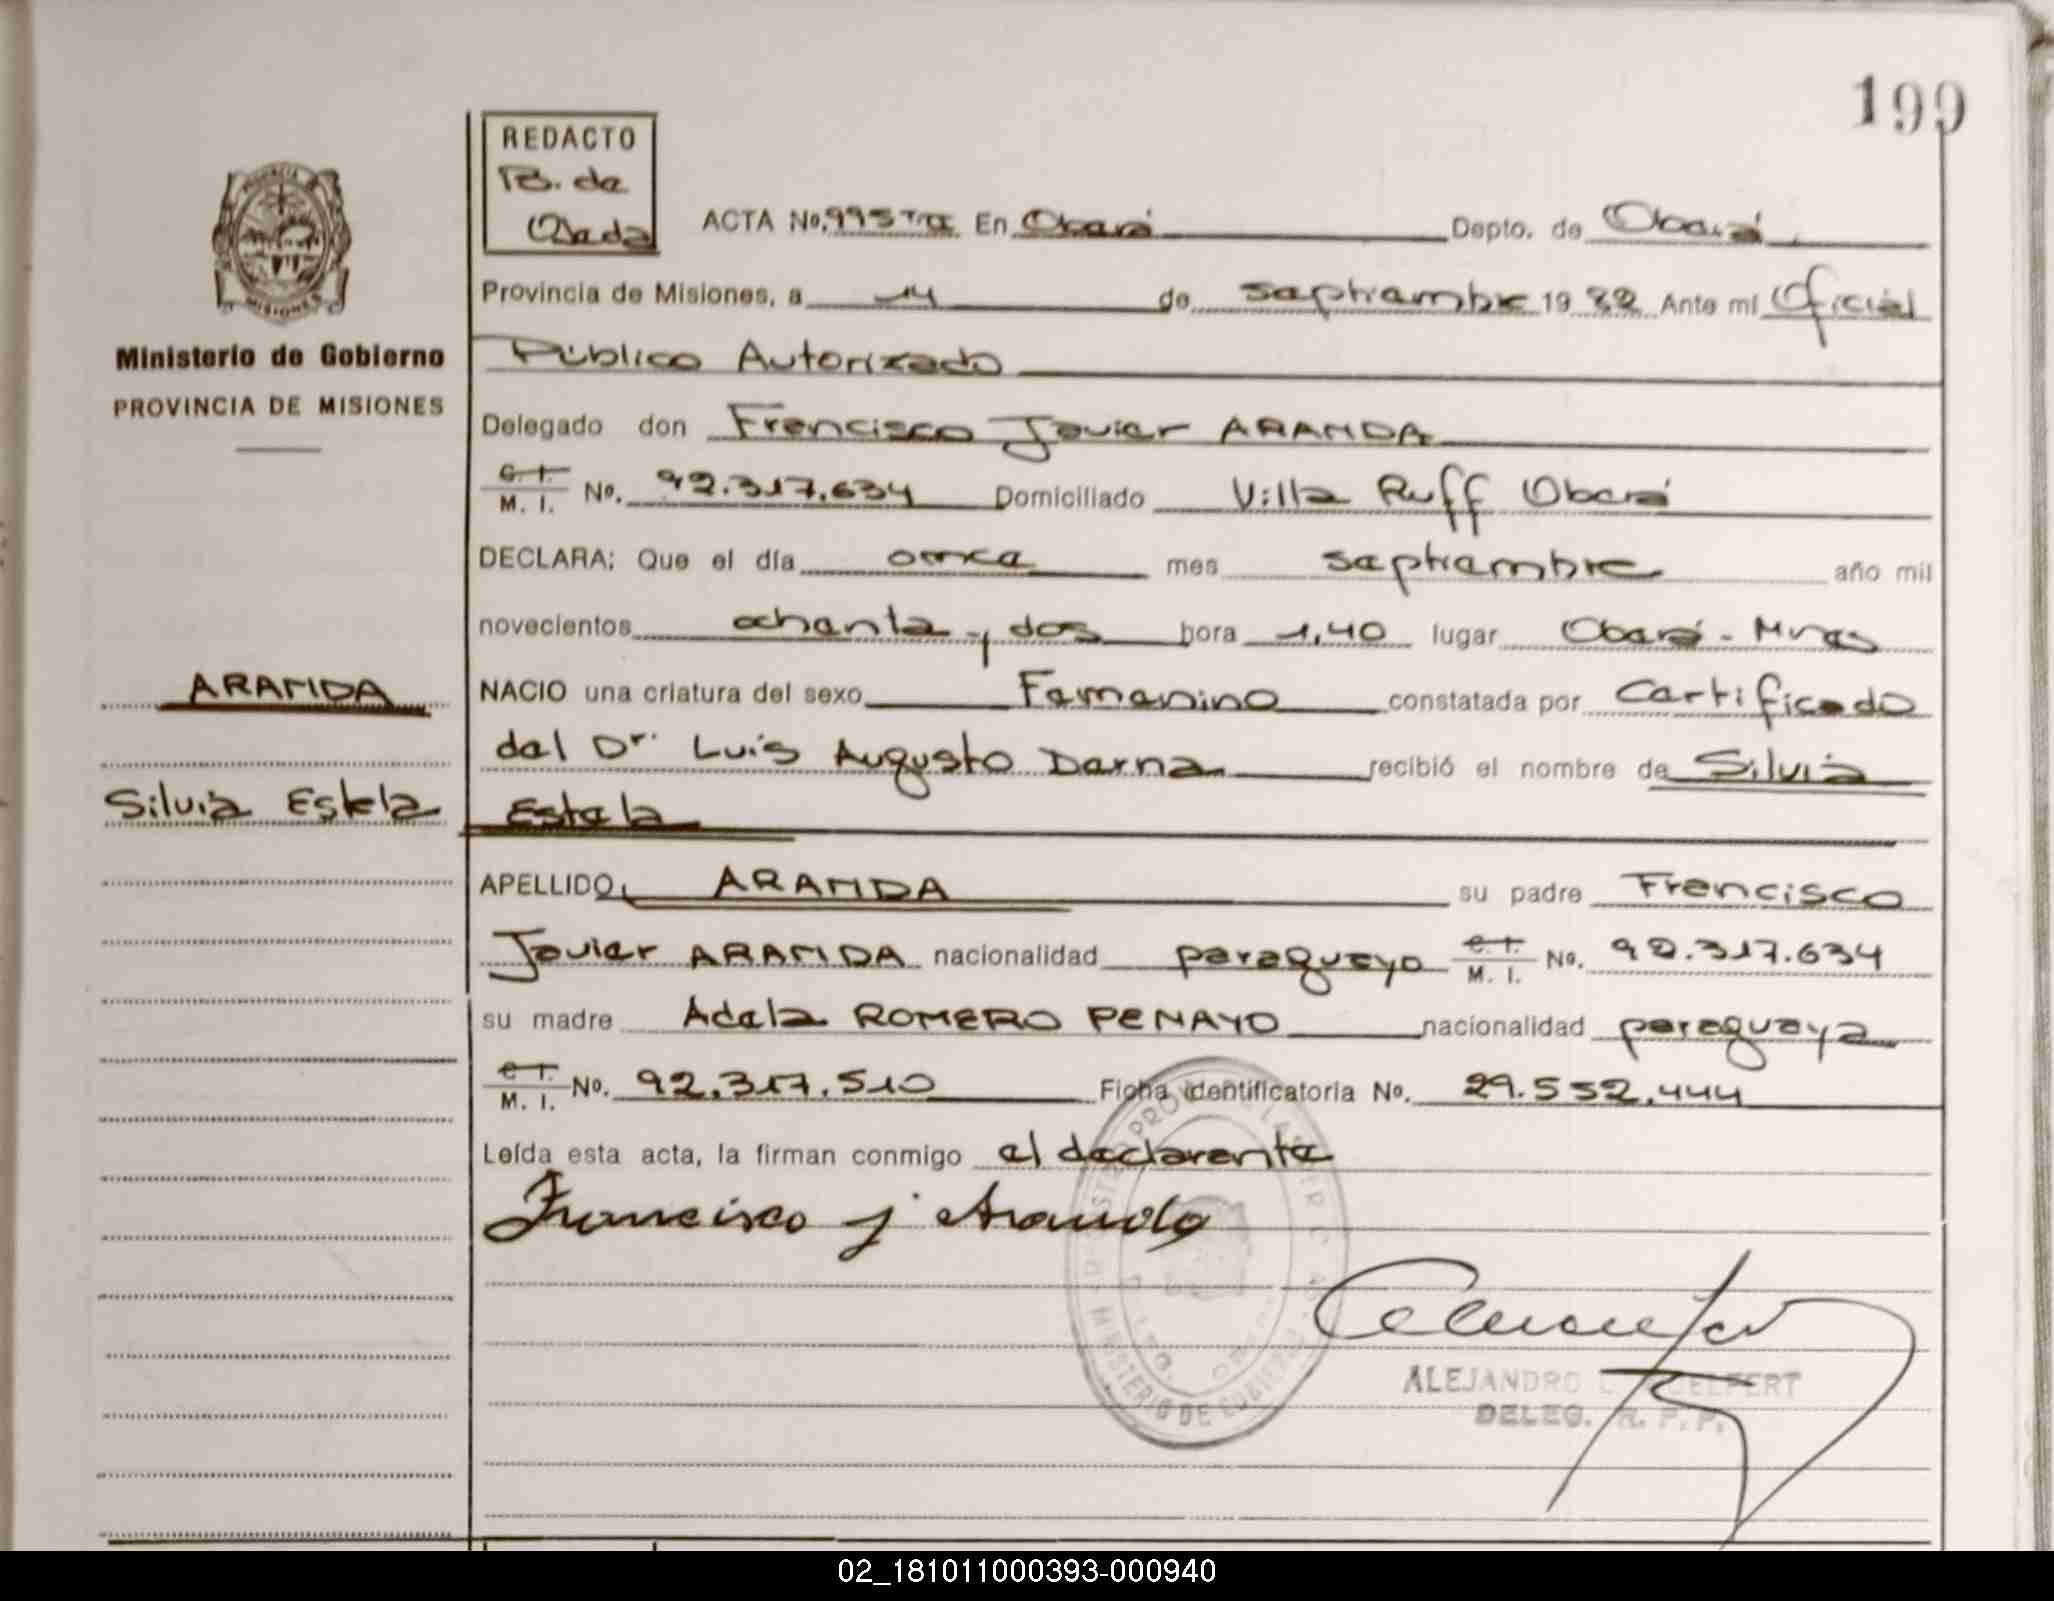 199
REDACTO
B. de
ACTA No. 995 En Oberá Depto. de Oberá
Provincia de Misiones, a 14 de septiembre 1982 Ante mi Oficial
Ministerio de Gobierno
Público Autorizado
PROVINCIA DE MISIONES
Delegado don Francisco Javier ARANDA
C. I. M. I. No. 92.317.634 Domiciliado Villa Ruff Oberá
DECLARA: Que el día once mes septiembre año mil
novecientos ochenta y dos hora 1,40 lugar Oberá - Mnes
ARANDA
NACIO una criatura del sexo Femenino constatada por Certificado
del Dr. Luis Augusto Darna recibió el nombre de Silvia
Silvia Estela
Estela
APELLIDO ARANDA su padre Francisco
Javier ARANDA nacionalidad paraguayo C. I. M. I. No. 92.317.634
su madre Adela ROMERO PENAYO nacionalidad paraguaya
C. I. M. I. No. 92.317.510 Ficha identificatoria No. 29.552.444
Leída esta acta, la firman conmigo el declarente
Francisco J Aranda
ALEJANDRO
DELEG. R. P. P.
MINISTERIO DE GOBIERNO
02_181011000393-000940